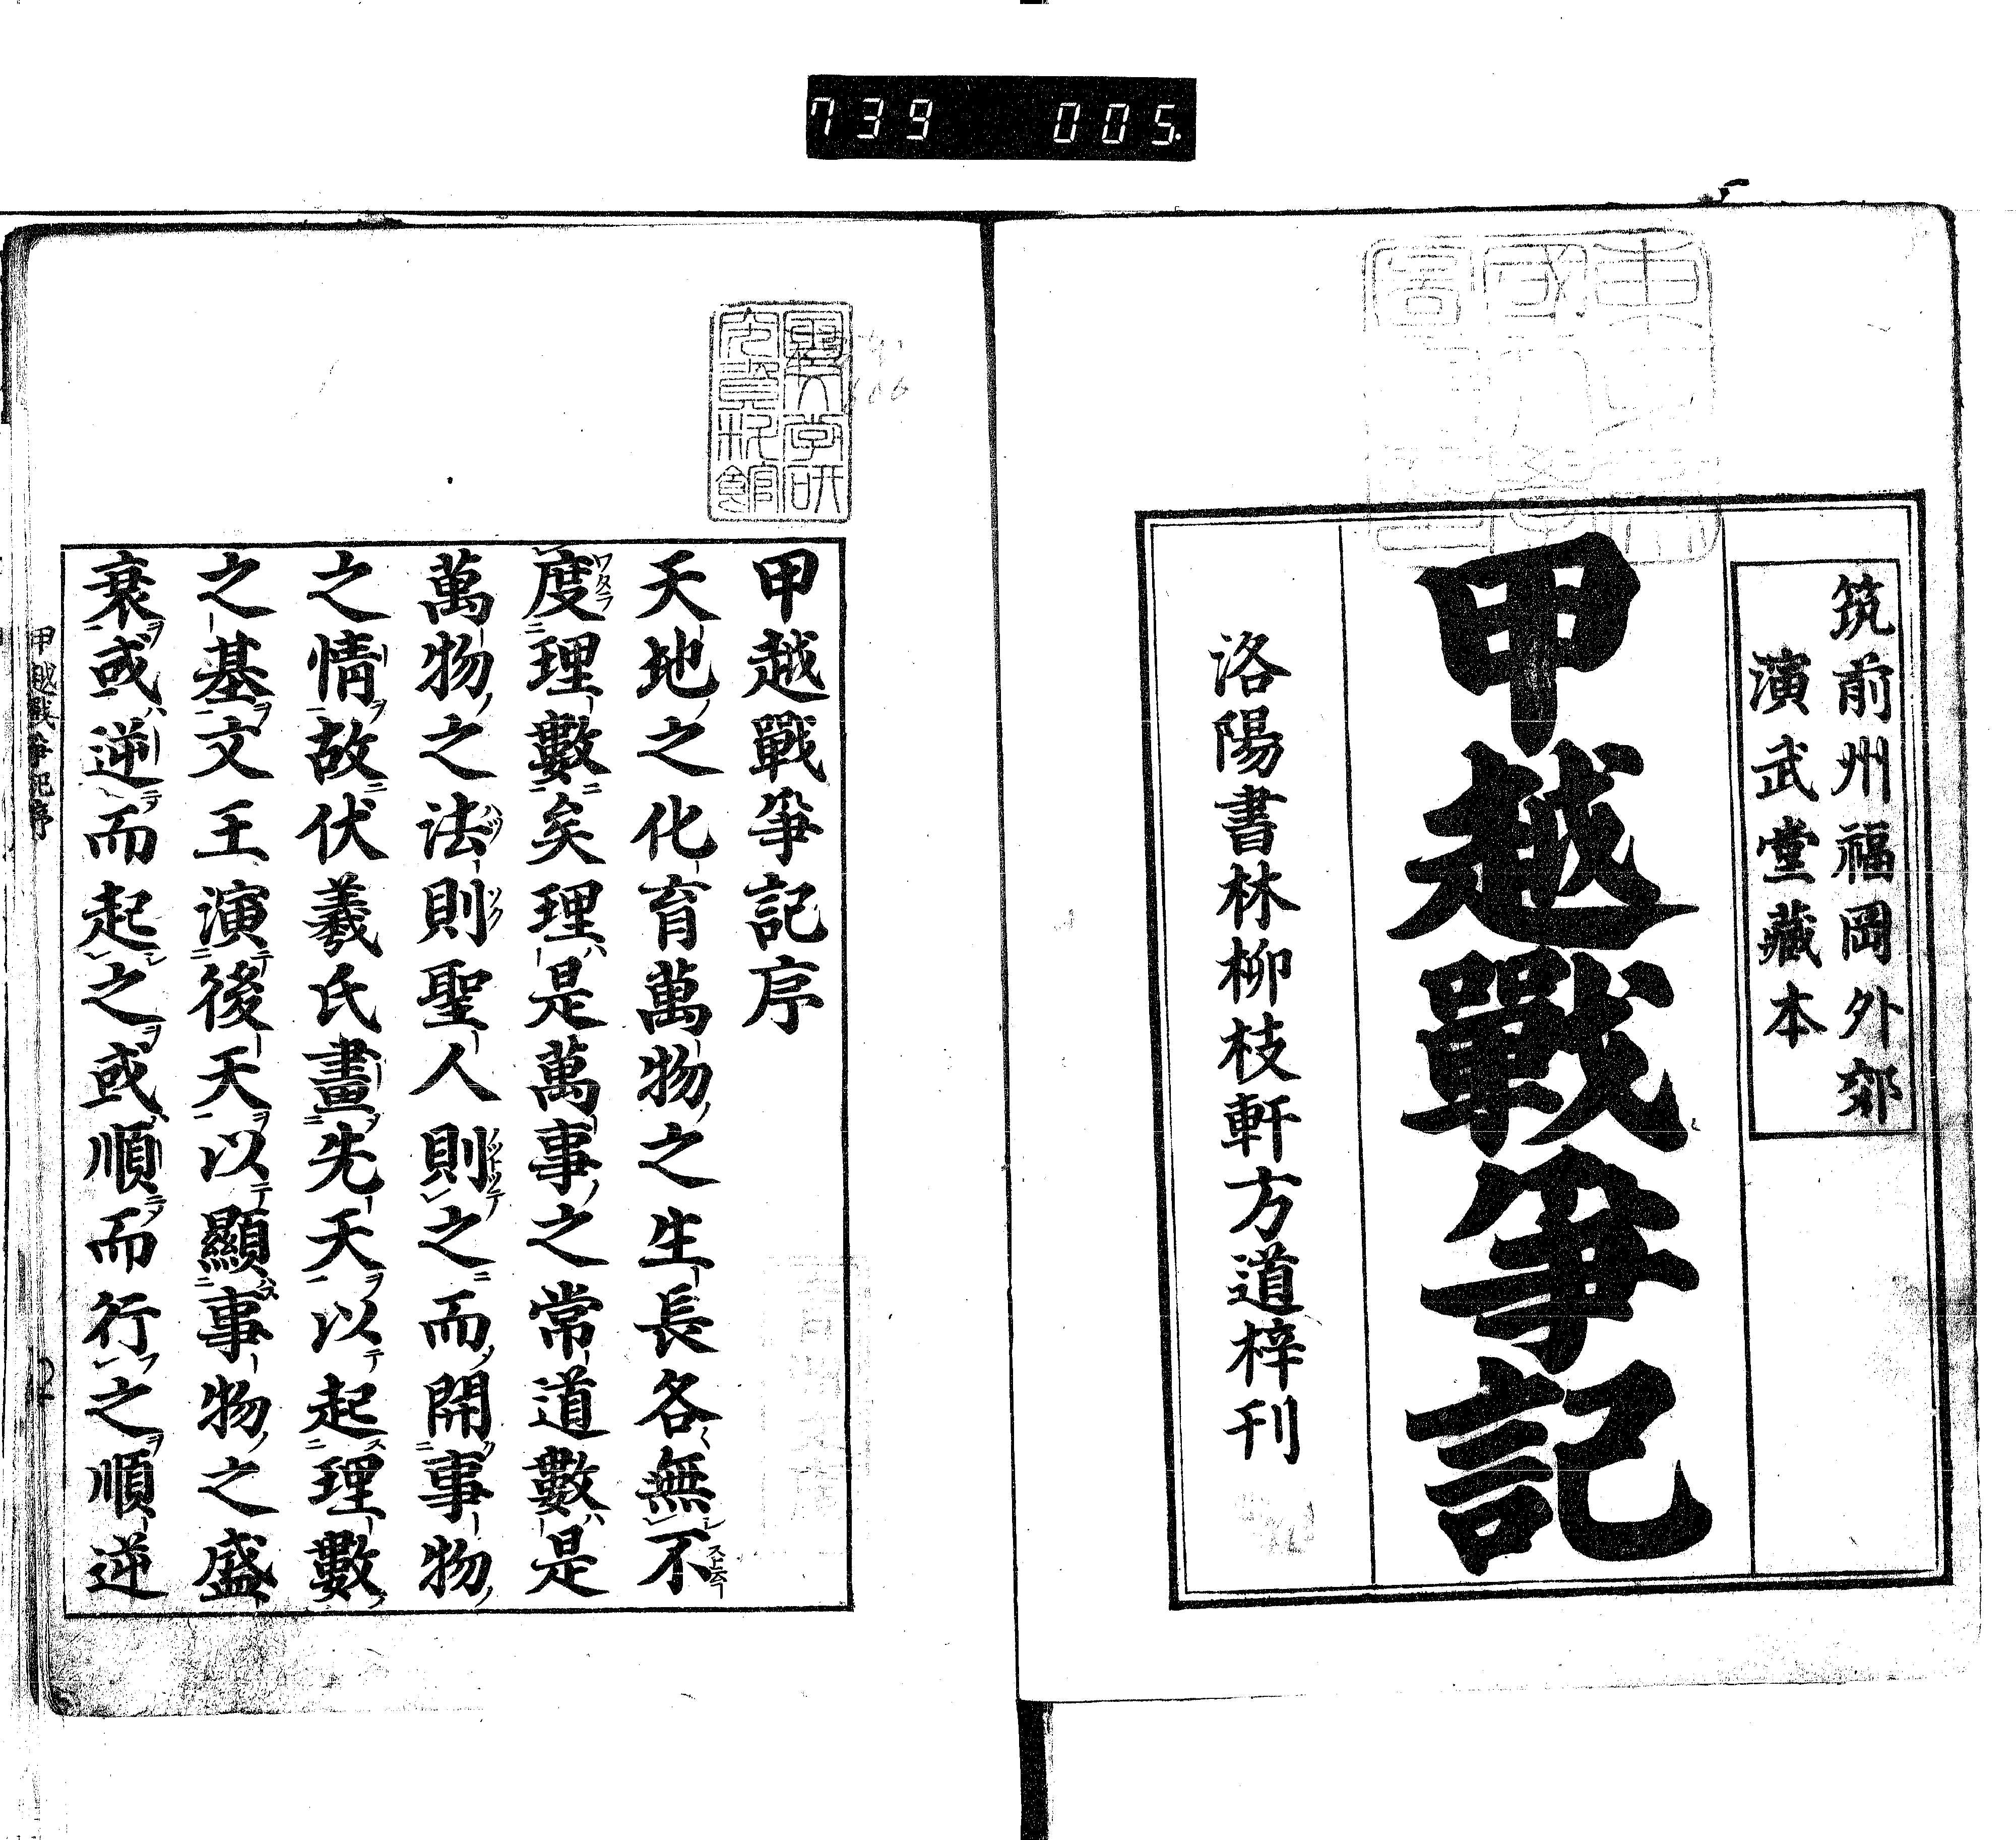 739 005.
筑前州福岡外郊
演武堂藏本
甲越戰爭記
洛陽書林柳枝軒方道梓刊
國文学研
究資料館
甲越戰爭記序
天地之化育萬物之生長各無不
度理數矣理是萬事之常道數是
萬物之法則聖人則之而開事物
之情故伏羲氏畫先天以起理數
之基文王演後天以顯事物之盛
衰或逆而起之或順而行之順逆
甲越戰爭記序